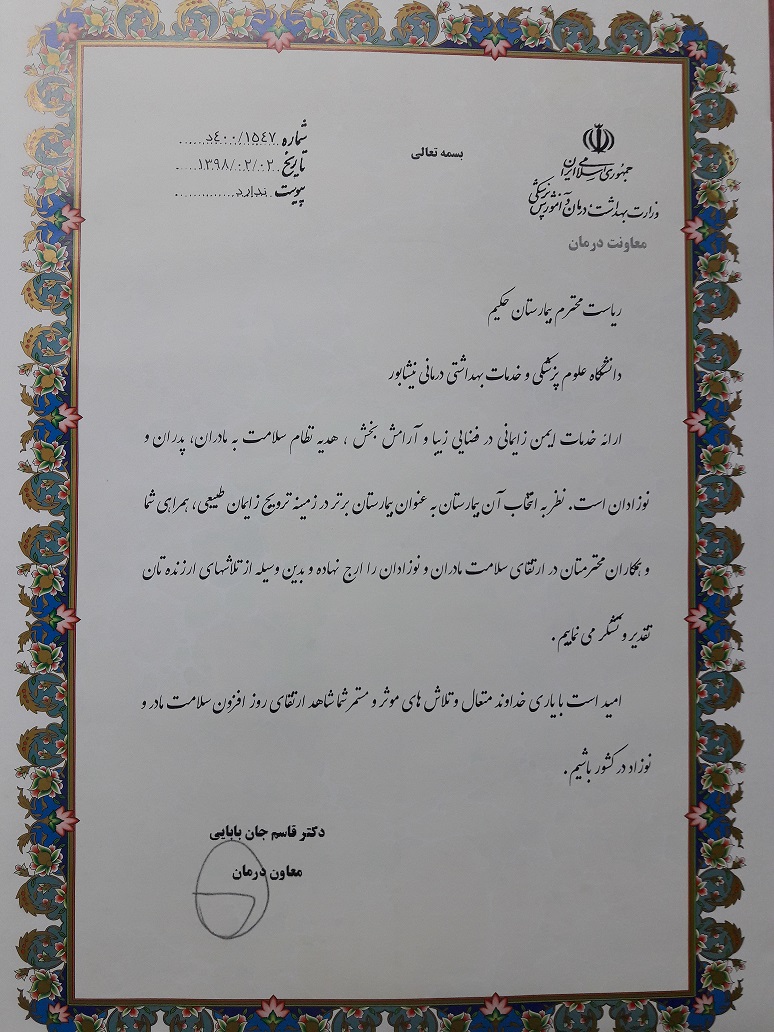 بسمه تعالی
جمهوری اسلامی ایران
وزارت بهداشت، درمان و آموزش پزشکی
معاونت درمان
شماره ۴۰۰/۱۵۴۷د
تاریخ ۱۳۹۸/۰۲/۰۲
پیوست ندارد
ریاست محترم بیمارستان حکیم
دانشگاه علوم پزشکی و خدمات بهداشتی درمانی نیشابور
ارائه خدمات ایمن زایمانی در فضایی زیبا و آرامش بخش ، هدیه نظام سلامت به مادران، پدران و
نوزادان است. نظر به انتخاب آن بیمارستان به عنوان بیمارستان برتر در زمینه ترویج زایمان طبیعی، همراهی شما
و همکاران محترمتان در ارتقای سلامت مادران و نوزادان را ارج نهاده و بدین وسیله از تلاشهای ارزنده تان
تقدیر و تشکر می نماییم.
امید است با یاری خداوند متعال و تلاش های موثر و مستمر شما شاهد ارتقای روز افزون سلامت مادر و
نوزاد در کشور باشیم.
دکتر قاسم جان بابایی
معاون درمان